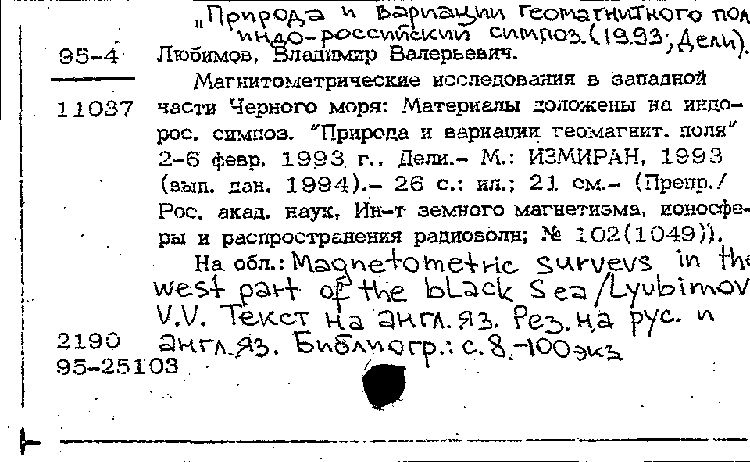 „Природа и вариации геомагнитного пол
индо-российский симпоз.(1993; Дели).
95-4 Любимов, Владимир Валерьевич.
Магнитометрические исследования в западной
11037 части Черного моря: Материалы доложены на индо-
рос. симпоз. "Природа и вариации геомагнит. поля"
2-6 февр. 1993 г., Дели.- М.: ИЗМИРАН, 1993
(вып. дан. 1994).- 26 с.: ил.; 21 см.- (Препр./
Рос. акад. наук, Ин-т земного магнетизма, ионосфе-
ры и распространения радиоволн; № 102(1049)).
На обл.: Magnetometric surveys in the
west part of the black Sea/Lyubimov
V.V. Текст на англ. яз. Рез. на рус. и
2190 англ. яз. Библиогр.: с. 8.-100экз
95-25103